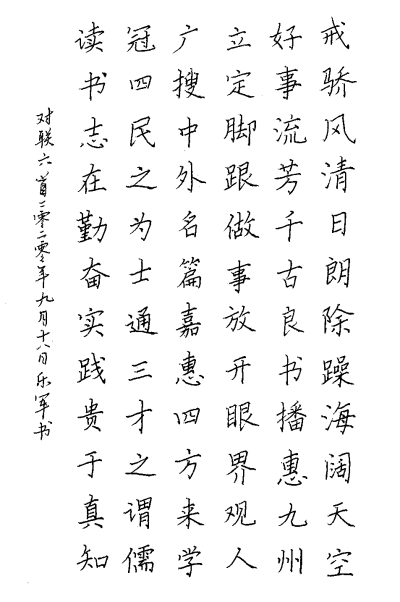 戒骄风清日朗除躁海阔天空
好事流芳千古良书播惠九州
立定脚跟做事放开眼界观人
广搜中外名篇嘉惠四方来学
冠四民之为士通三才之谓儒
读书志在勤奋实践贵于真知
对联六首二零二零年九月十八日乐军书